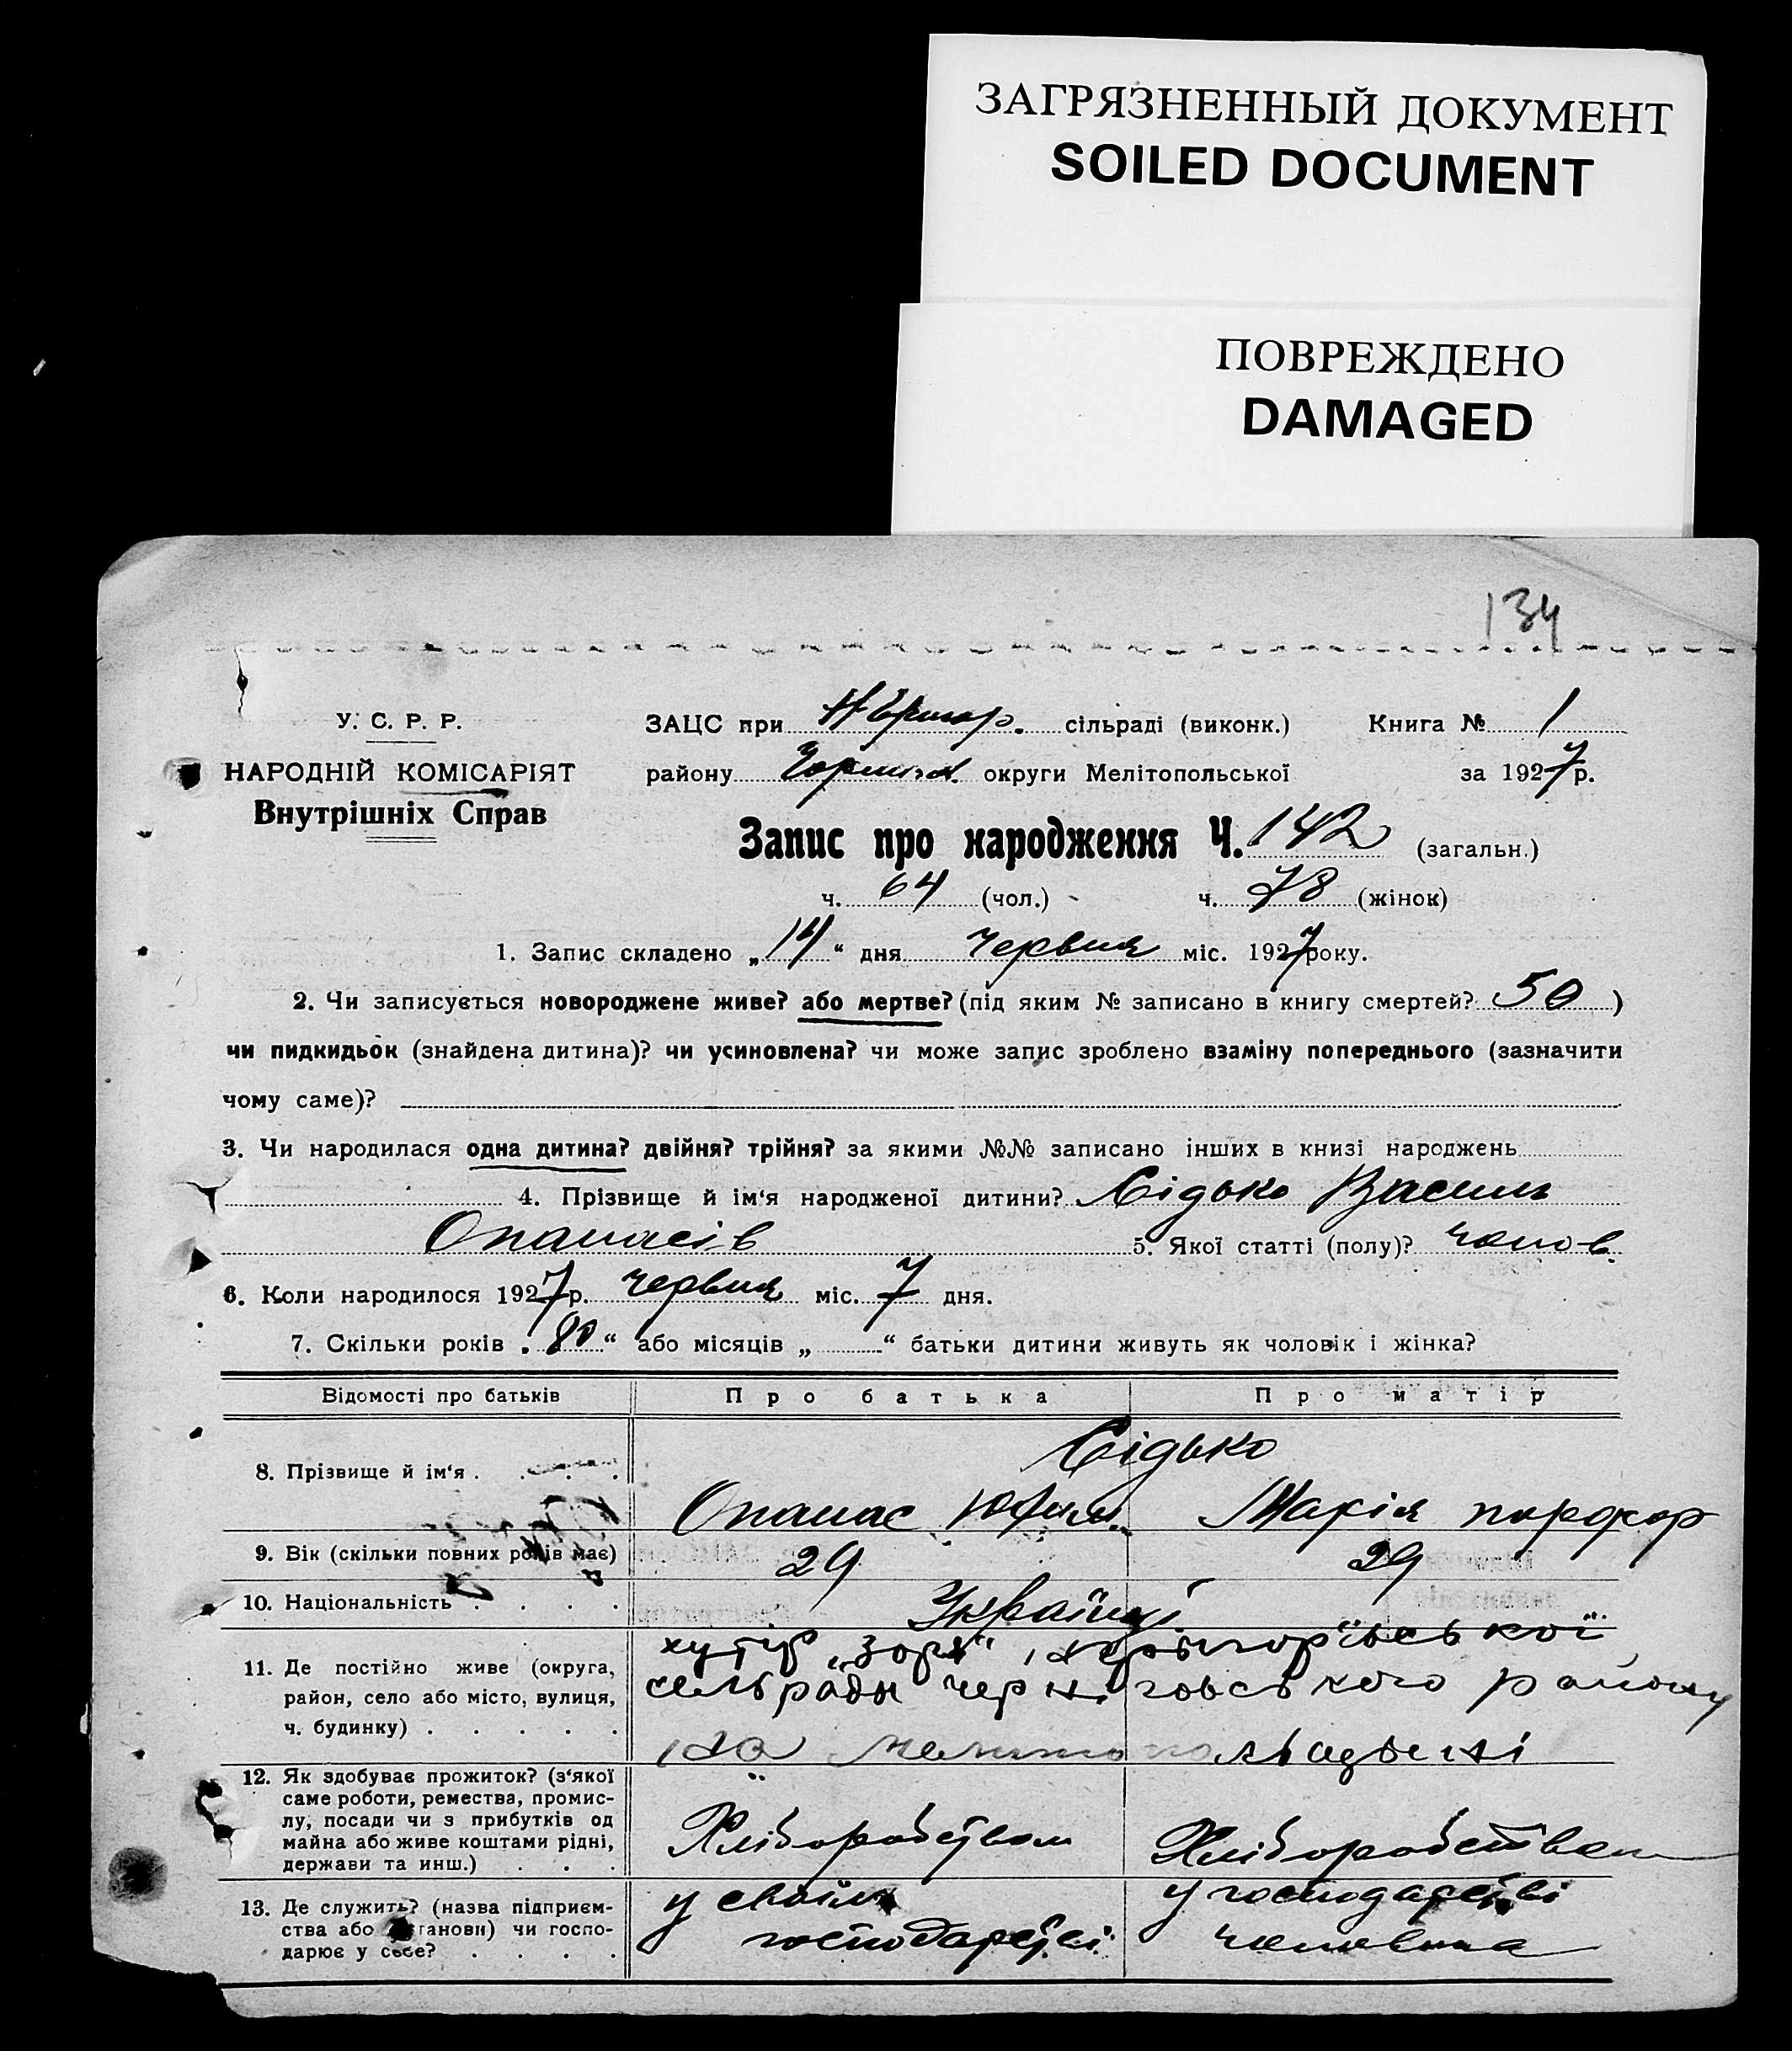 ЗАГРЯЗНЕННЫЙ ДОКУМЕНТ
SOILED DOCUMENT
ПОВРЕЖДЕНО
DAMAGED
134
У. С. Р. Р.
НАРОДНІЙ КОМІСАРІЯТ
Внутрішніх Справ
ЗАЦС при сільраді (виконк.) Книга № 1
району округи Мелітопольської за 1927 р.
Запис про народження Ч. 142 (загальн.)
ч. 64 (чол.) ч. 78 (жінок)
1. Запис складено „14“ дня червня міс. 1927 року.
2. Чи записується новороджене живе? або мертве? (під яким № записано в книгу смертей? 50)
чи пидкидьок (знайдена дитина)? чи усиновлена? чи може запис зроблено взаміну попереднього (зазначити
чому саме)?
3. Чи народилася одна дитина? двійня? трійня? за якими №№ записано інших в книзі народжень
4. Прізвище й ім'я народженої дитини? Сідько Василь
Опанасів 5. Якої статті (полу)? чолов.
6. Коли народилося 1927 р. червня міс. 7 дня.
7. Скільки років „ “ або місяців „ “ батьки дитини живуть як чоловік і жінка?
Відомості про батьків Про батька Про матір
8. Прізвище й ім'я . . . . Сідько
Опанас Юхим. Марія
9. Вік (скільки повних років має) 29 29
10. Національність . . . . Українці
11. Де постійно живе (округа, район, село або місто, вулиця, ч. будинку) . . . . .
хутір „Зоря“,
сельради черніговського району
на Мелитопольщині
12. Як здобуває прожиток? (з'якої саме роботи, ремества, промислу, посади чи з прибутків од майна або живе коштами рідні, держави та инш.) . . .
Хліборобством Хліборобством
13. Де служить? (назва підприємства або установи) чи господарює у себе? . . . .
у своїм у господарстві
господарстві чоловіка